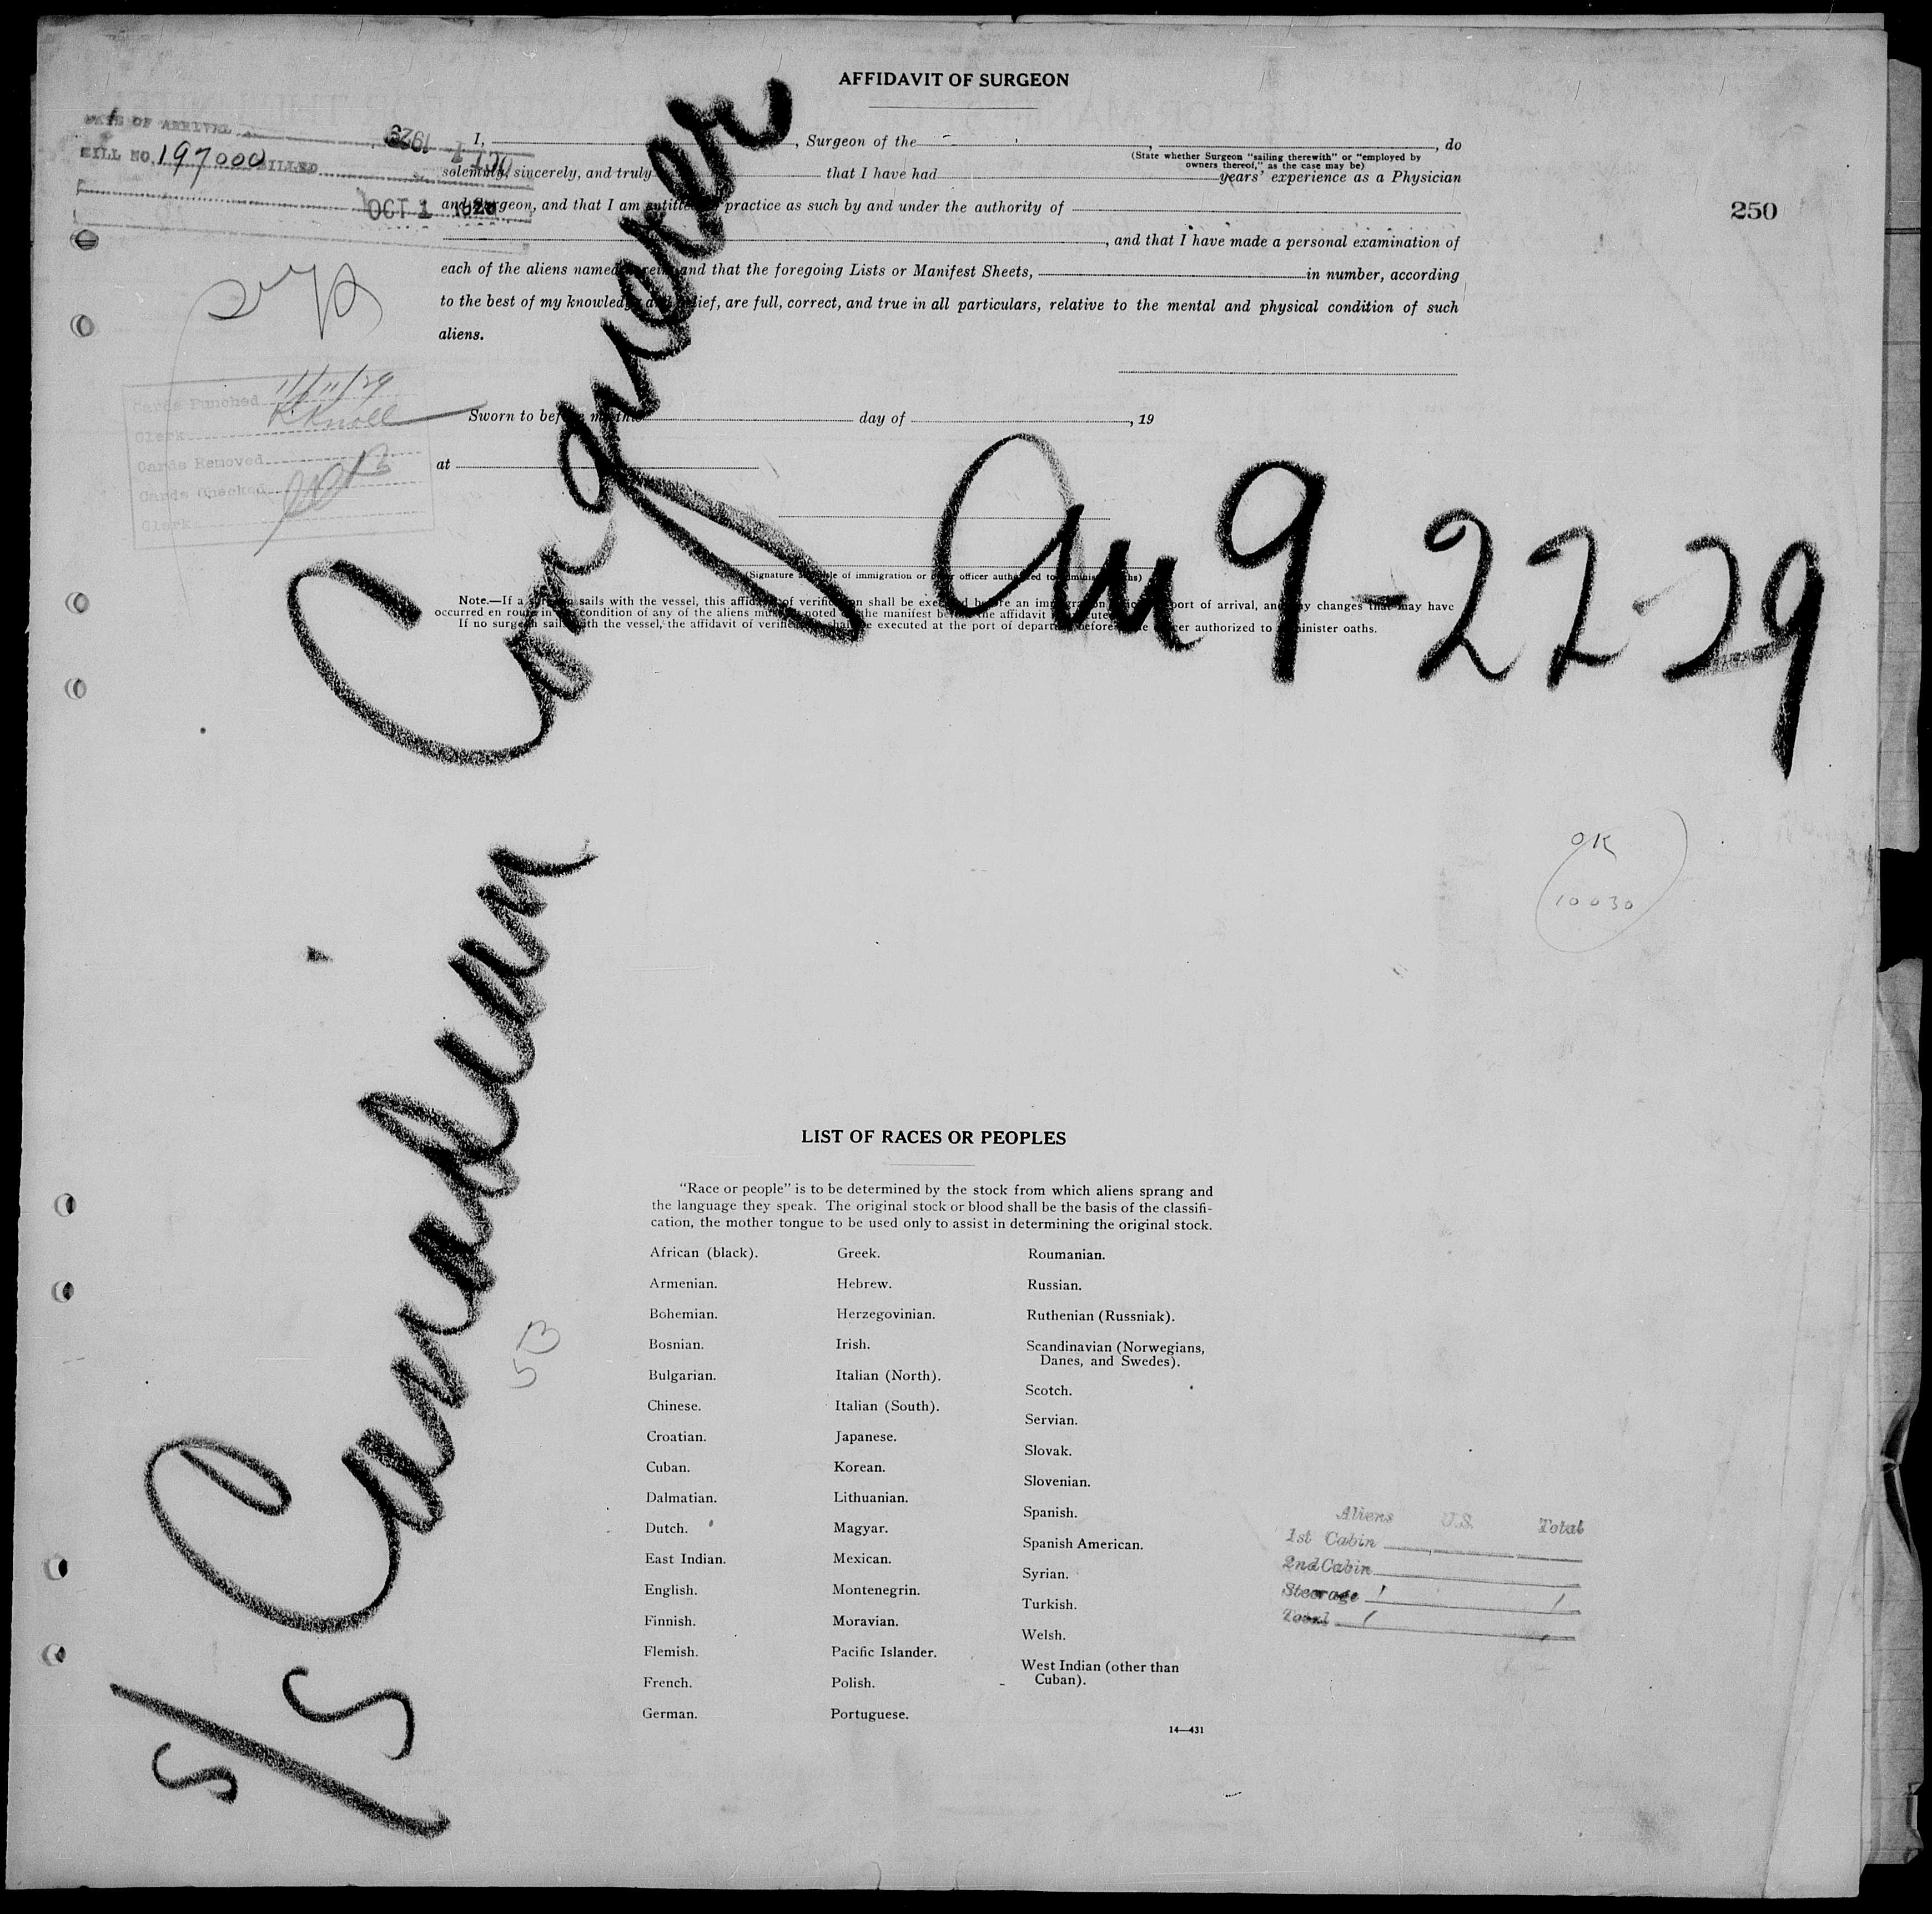 AFFIDAVIT OF SURGEON
DATE OF ARRIVAL
BILL NO. 197000 BILLED
OCT 1 1929
OCT 1 1929
250
I, , Surgeon of the , , do
(State whether Surgeon "sailing therewith" or "employed by
owners thereof," as the case may be)
solemnly, sincerely, and truly that I have had years' experience as a Physician
and Surgeon, and that I am entitled to practice as such by and under the authority of
, and that I have made a personal examination of
each of the aliens named herein, and that the foregoing Lists or Manifest Sheets, in number, according
to the best of my knowledge and belief, are full, correct, and true in all particulars, relative to the mental and physical condition of such
aliens.
Cards Punched 11/11/29
Clerk K. Knoll
Cards Removed
Cards Checked
Clerk
Sworn to before me this day of , 19
at
(Signature and title of immigration or other officer authorized to administer oaths)
Note.—If a surgeon sails with the vessel, this affidavit of verification shall be executed before an immigration officer at port of arrival, and any changes that may have
occurred en route in the condition of any of the aliens must be noted on the manifest before the affidavit is executed.
If no surgeon sails with the vessel, the affidavit of verification shall be executed at the port of departure before some officer authorized to administer oaths.
S/S Canadian Conqueror
9-22-29
OK
10030
LIST OF RACES OR PEOPLES
"Race or people" is to be determined by the stock from which aliens sprang and
the language they speak. The original stock or blood shall be the basis of the classifi-
cation, the mother tongue to be used only to assist in determining the original stock.
African (black).
Armenian.
Bohemian.
Bosnian.
Bulgarian.
Chinese.
Croatian.
Cuban.
Dalmatian.
Dutch.
East Indian.
English.
Finnish.
Flemish.
French.
German.
Greek.
Hebrew.
Herzegovinian.
Irish.
Italian (North).
Italian (South).
Japanese.
Korean.
Lithuanian.
Magyar.
Mexican.
Montenegrin.
Moravian.
Pacific Islander.
Polish.
Portuguese.
Roumanian.
Russian.
Ruthenian (Russniak).
Scandinavian (Norwegians,
Danes, and Swedes).
Scotch.
Servian.
Slovak.
Slovenian.
Spanish.
Spanish American.
Syrian.
Turkish.
Welsh.
West Indian (other than
Cuban).
14—431
Aliens U.S. Total
1st Cabin
2nd Cabin
Steerage 1 1
Total 1 1